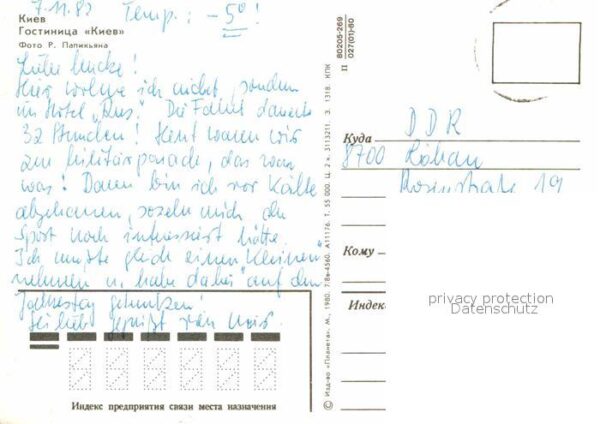 7.11.83 Temp.: -5°!
Киев
Гостиница «Киев»
Фото Р. Папикьяна
Hier wohne ich nicht, sondern
im Hotel "Rus". Die Fahrt dauerte
32 Stunden! Heut waren wir
zur Militärparade, das war
was! Dann bin ich vor Kälte
abgehauen, sosehr mich der
Sport noch interessiert hätte.
Ich mußte gleich einen "Kleinen"
nehmen u. habe dabei auf den
Jahrestag getrunken!
Sei lieb gegrüßt von
80205-269
027(01)-80
II
© Изд-во «Планета». М., 1980. 7-8в-4560. А11176. Т. 55 000. Ц. 2 к. 3113211. З. 1318. КПК
Куда DDR
8700 Löbau
19
Кому
Индекс
privacy protection
Datenschutz
Индекс предприятия связи места назначения